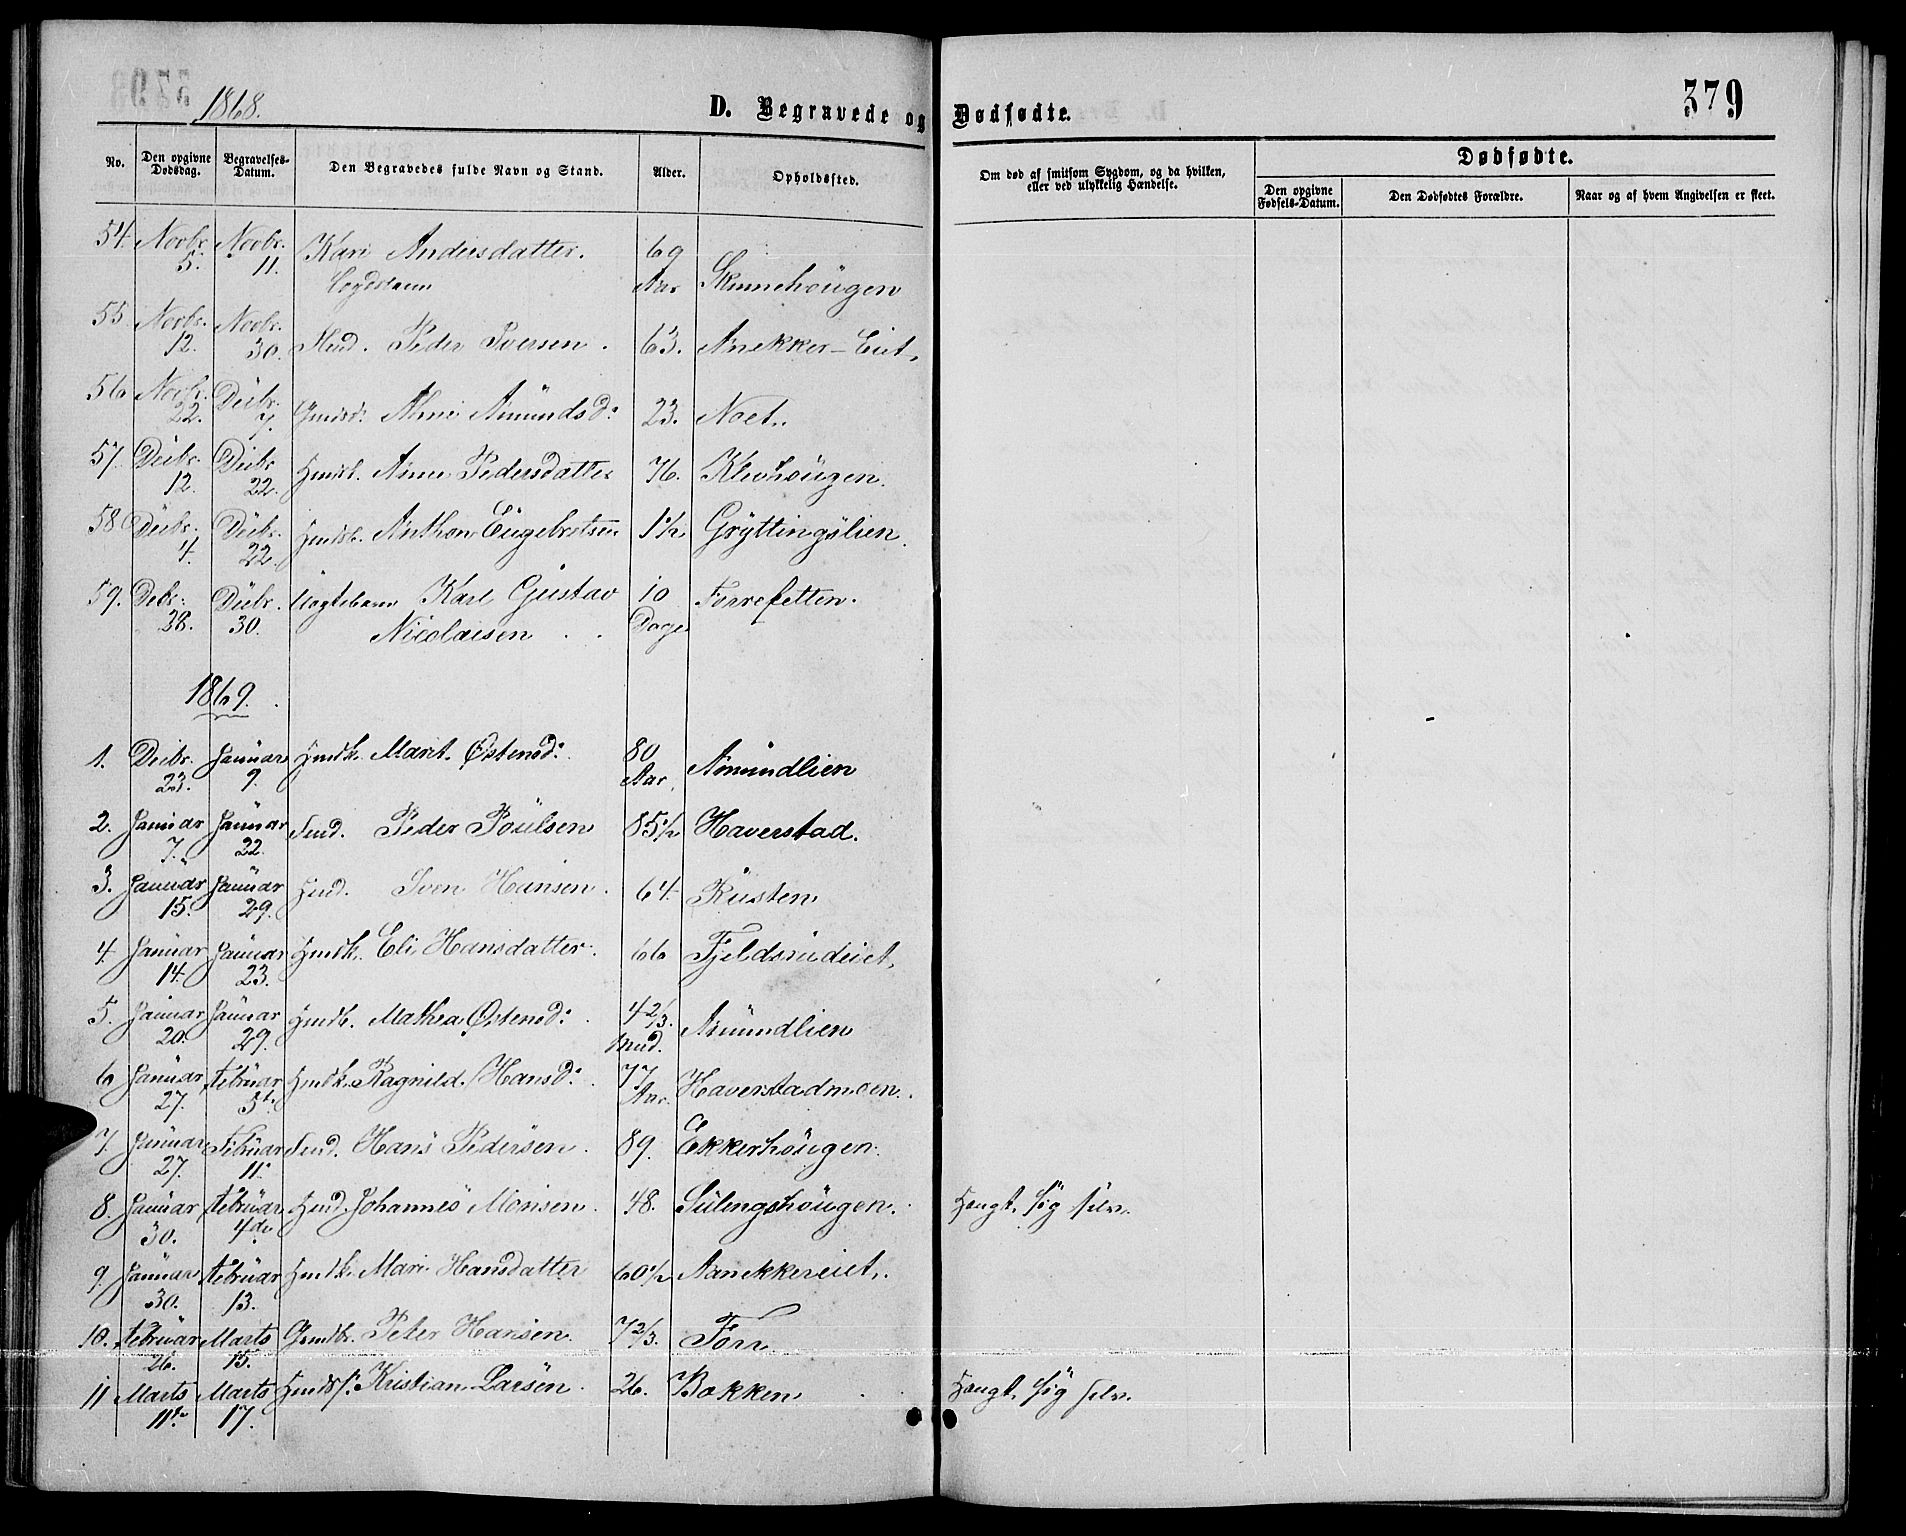 1868.
D. Begravede og Dødfødte.
379
No.
Den opgivne Dødsdag.
Begravelses-Datum.
Den Begravedes fulde Navn og Stand.
Alder.
Opholdssted.
Om død af smitsom Sygdom, og da hvilken, eller ved ulykkelig Hændelse.
Dødfødte.
Den opgivne Fødsels-Datum.
Den Dødfødtes Forældre.
Naar og af hvem Angivelsen er skeet.
54. Novbr. 5. Novbr. 11. Kari Andersdatter. 69 Aar Skinnehougen
55. Novbr. 12. Novbr. 30. Hmd. Peder Iversen. 63. Anekker-Eiet.
56 Novbr. 22. Decbr. 7. Gmdsd. Anne Amundsd: 23. Noet.
57. Decbr. 12. Decbr. 22. Anne Pedersdatter 76. Klevhougen.
58 Decbr. 4. Decbr. 22. Anthon Engebretsen 1½ Gryttingslien.
59. Debr. 28. Decbr. 30. Uægtebarn Karl Gustav 10 Forresletten.
Nicolaisen Dage
1869.
1. Decbr. 23. Januar 9. Hmdk. Marit Østensd: 80 Aar, Amundlien
2. Januar 7. Januar 22. Peder Poulsen 85½ Haverstad.
3. Januar 15. Januar 29. Hmd. Iven Hansen. 64. Rusten
4. Januar 14. Januar 23. Hmdk. Eli Hansdatter. 66 Fjeldsrudeiet,
5. Januar 20. Januar 29. Hmdb. Mathea Østensd: 4 2/3. Mnd. Amundlien
6 Januar 27. Februar 5te Hmdk. Ragnild Hansd: 77 Aar. Haverstadmoen.
7. Januar 27. Februar 11. Hans Pedersen. 89. Ekkerhougen.
8. Januar 30. Februar 4de Hmd. Johannes Monsen. 48. Sulengshougen. Hængt sig selv.
9. Januar 30. Februar 13. Hmdk. Mari Hansdatter 60½ Aanekkereiet.
10. Februar 26. Marts 15. Gmdbr. Peter Hansen. 7 2/3. Forr
11 Marts 11te Marts 17. Kristian Larsen. 26. Bakken Hængt sig selv.